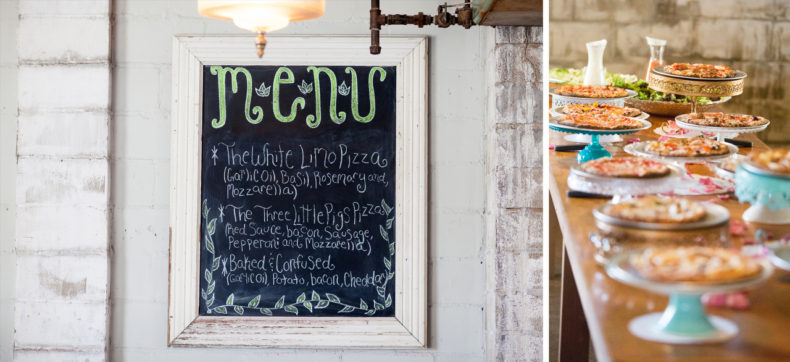 menu
*The White Limo Pizza
(Garlic Oil, Basil, Rosemary and,
Mozzarella)
*The Three Little Pigs Pizza
(Red Sauce, bacon, Sausage,
Pepperoni and Mozzarella)
*Baked & Confused
(Garlic Oil, Potato, bacon, Cheddar)